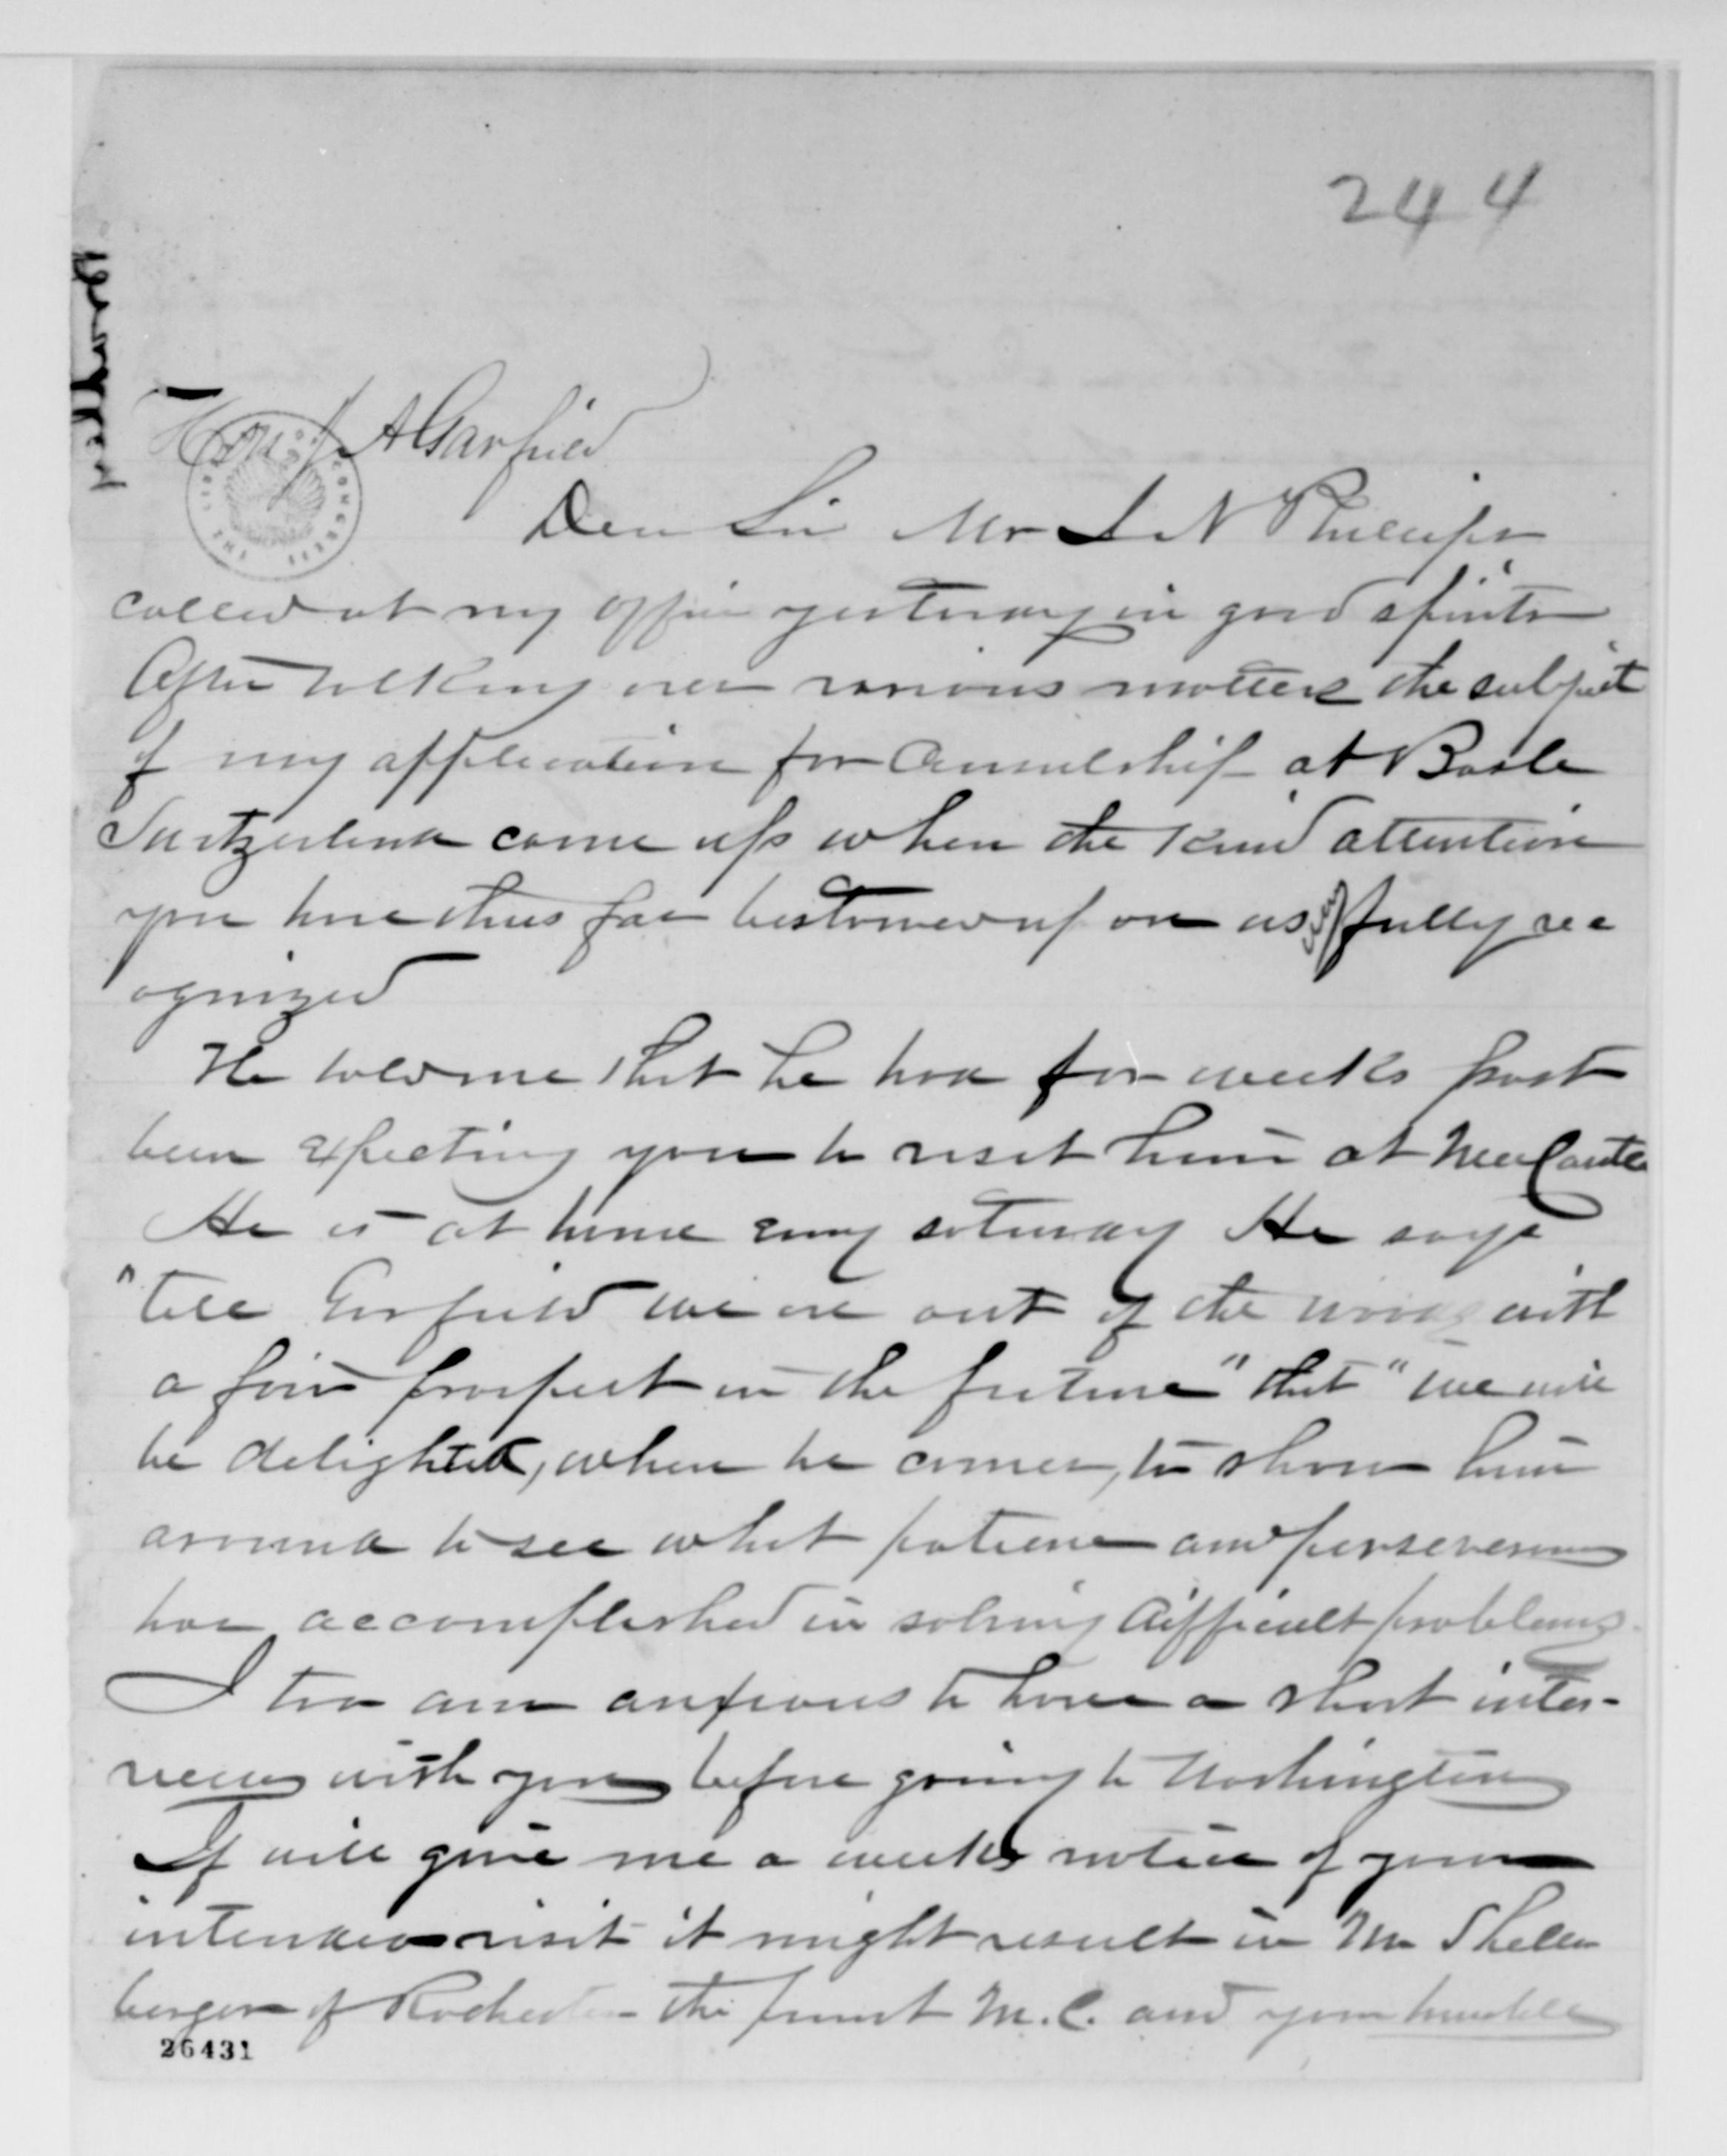 244
Hon J A Garfield
Dear Sir Mr I N Phillips
called at my office yesterday in good spirits
After talking over various matters the subject
of my application for Consulship at Basle
Switzerland came up when the kind attention
you have thus far bestowed upon us was fully rec
ognized
He told me that he had for weeks past
been expecting you to visit him at New Castle
He is at home every saturday He says
"tell Garfield we are out of the woods with
a fair prospect in the future" that "we will
be delighted, when he comes, to show him
around to see what patience and perseverance
has accomplished in solving difficult problems.
I too am anxious to have a short inter-
view with you before going to Washington
If will give me a weeks notice of your
intended visit it might result in Mr Shallen
berger of Rochester the present M.C. and your humble
26431